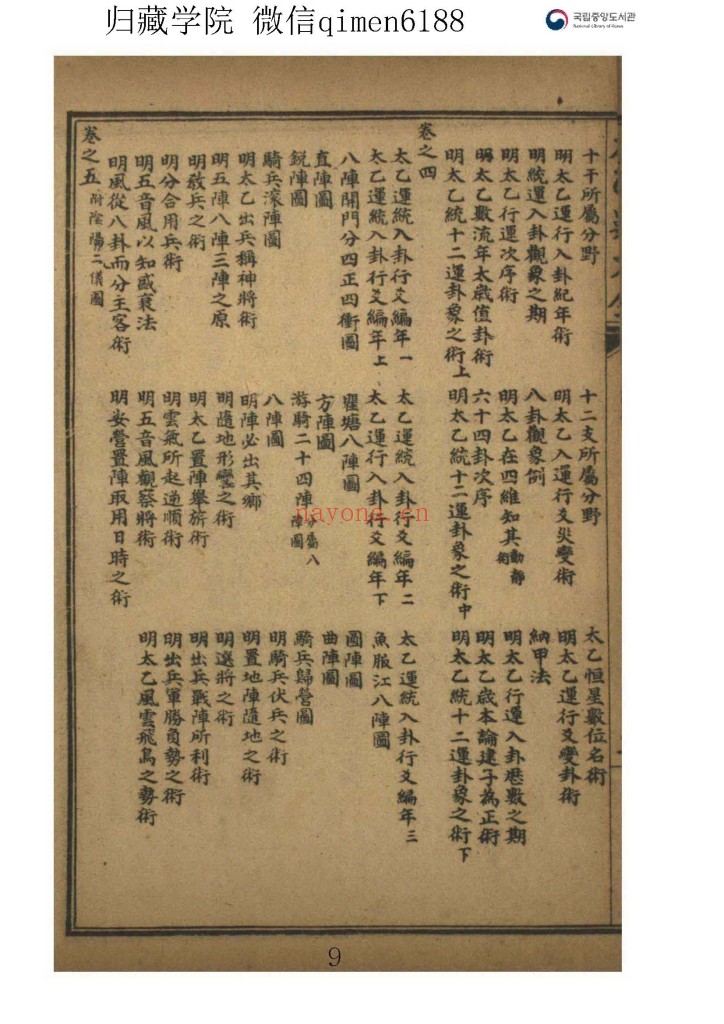 归藏学院 微信qimen6188
국립중앙도서관
National Library of Korea
十干所屬分野 十二支所屬分野 太乙恒星數位名術
明太乙運行入卦紀年術 明太乙入運行爻災變術 明太乙運行爻變卦術
明統運入卦觀象之期 八卦觀象例 納甲法
明太乙行運次序術 明太乙在四維知其動靜術 明太乙行運入卦歷數之期
明太乙數流年太歲值卦術 六十四卦次序 明太乙歲本論建子為正術
明太乙統十二運卦象之術上 明太乙統十二運卦象之術中 明太乙統十二運卦象之術下
卷之四
太乙運統入卦行爻編年一 太乙運統入卦行爻編年二 太乙運統入卦行爻編年三
太乙運統入卦行爻編年上 太乙運行入卦行爻編年下 魚服江八陣圖
八陣開門分四正四衝圖 瞿塘八陣圖 圓陣圖
直陣圖 方陣圖 曲陣圖
銳陣圖 游騎二十四陣分屬八陣圖 騎兵歸營圖
騎兵滾陣圖 八陣圖 明騎兵伏兵之術
明太乙出兵稱神將術 明陣必出其鄉 明置地陣隨地之術
明五陣八陣三陣之原 明隨地形變之術 明選將之術
明教兵之術 明太乙置陣舉旂術 明出兵戰陣所利術
明分合用兵術 明雲氣所起逆順術 明出兵軍勝負勢之術
明五音風以知盛衰法 明五音風觀察將術 明太乙風雲飛鳥之勢術
明風從八卦而分主客術 明安營置陣取用日時之術
卷之五 附陰陽二儀圖
nayona.cn
9